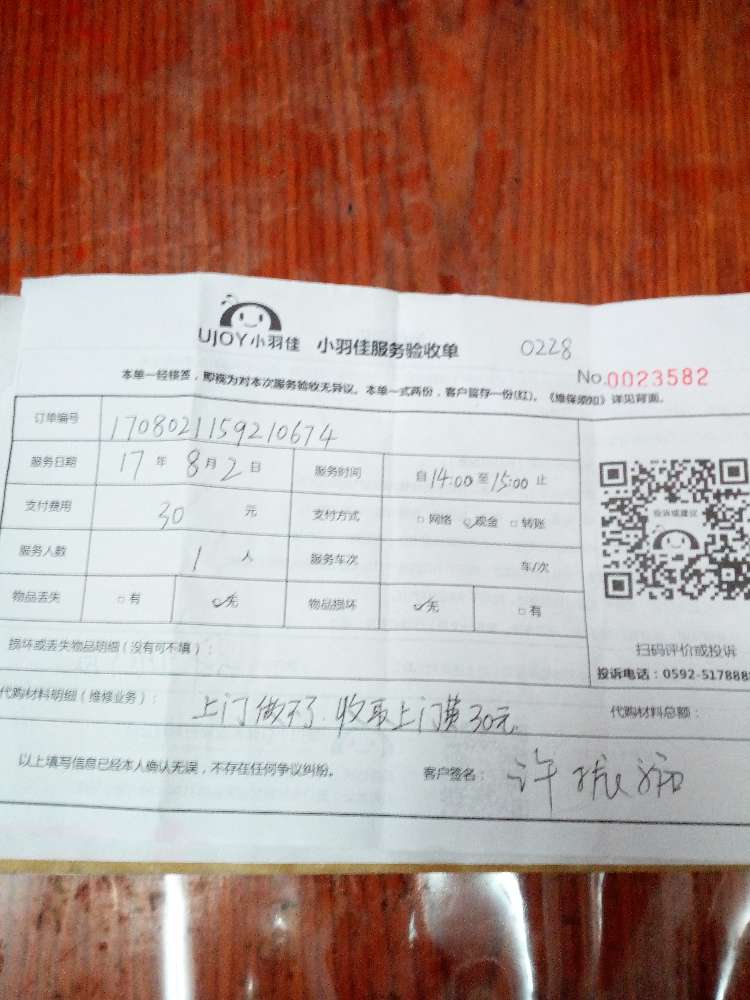 UJOY小羽佳 小羽佳服务验收单 0228
No.0023582
本单一经核签，即视为对本次服务验收无异议。本单一式两份，客户留存一份(红)。《维保须知》详见背面。
订单编号 1708021159210674
服务日期 17 年 8 月 2 日 服务时间 自 14:00 至 15:00 止
支付费用 30 元 支付方式 □网络 ☑现金 □转账
投诉或建议
服务人数 1 人 服务车次 车/次
物品丢失 □有 ☑无 物品损坏 ☑无 □有
损坏或丢失物品明细（没有可不填）：
扫码评价或投诉
投诉电话：0592-517888
代购材料明细（维修业务）： 上门做不了.收取上门费30元 代购材料总额：
以上填写信息已经本人确认无误，不存在任何争议纠纷。 客户签名： 许振